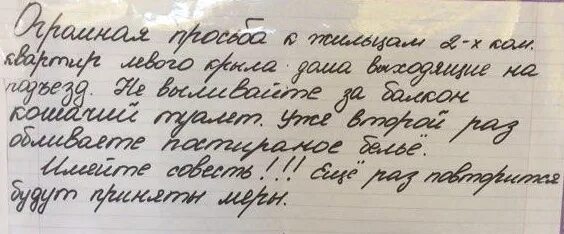 Огромная просьба к жильцам 2-х ком.
квартир левого крыла дома выходящие на
подъезд. Не выливайте за балкон
кошачий туалет. Уже второй раз
обливаете постираное бельё.
Имейте совесть!!! Ещё раз повторится
будут приняты меры.